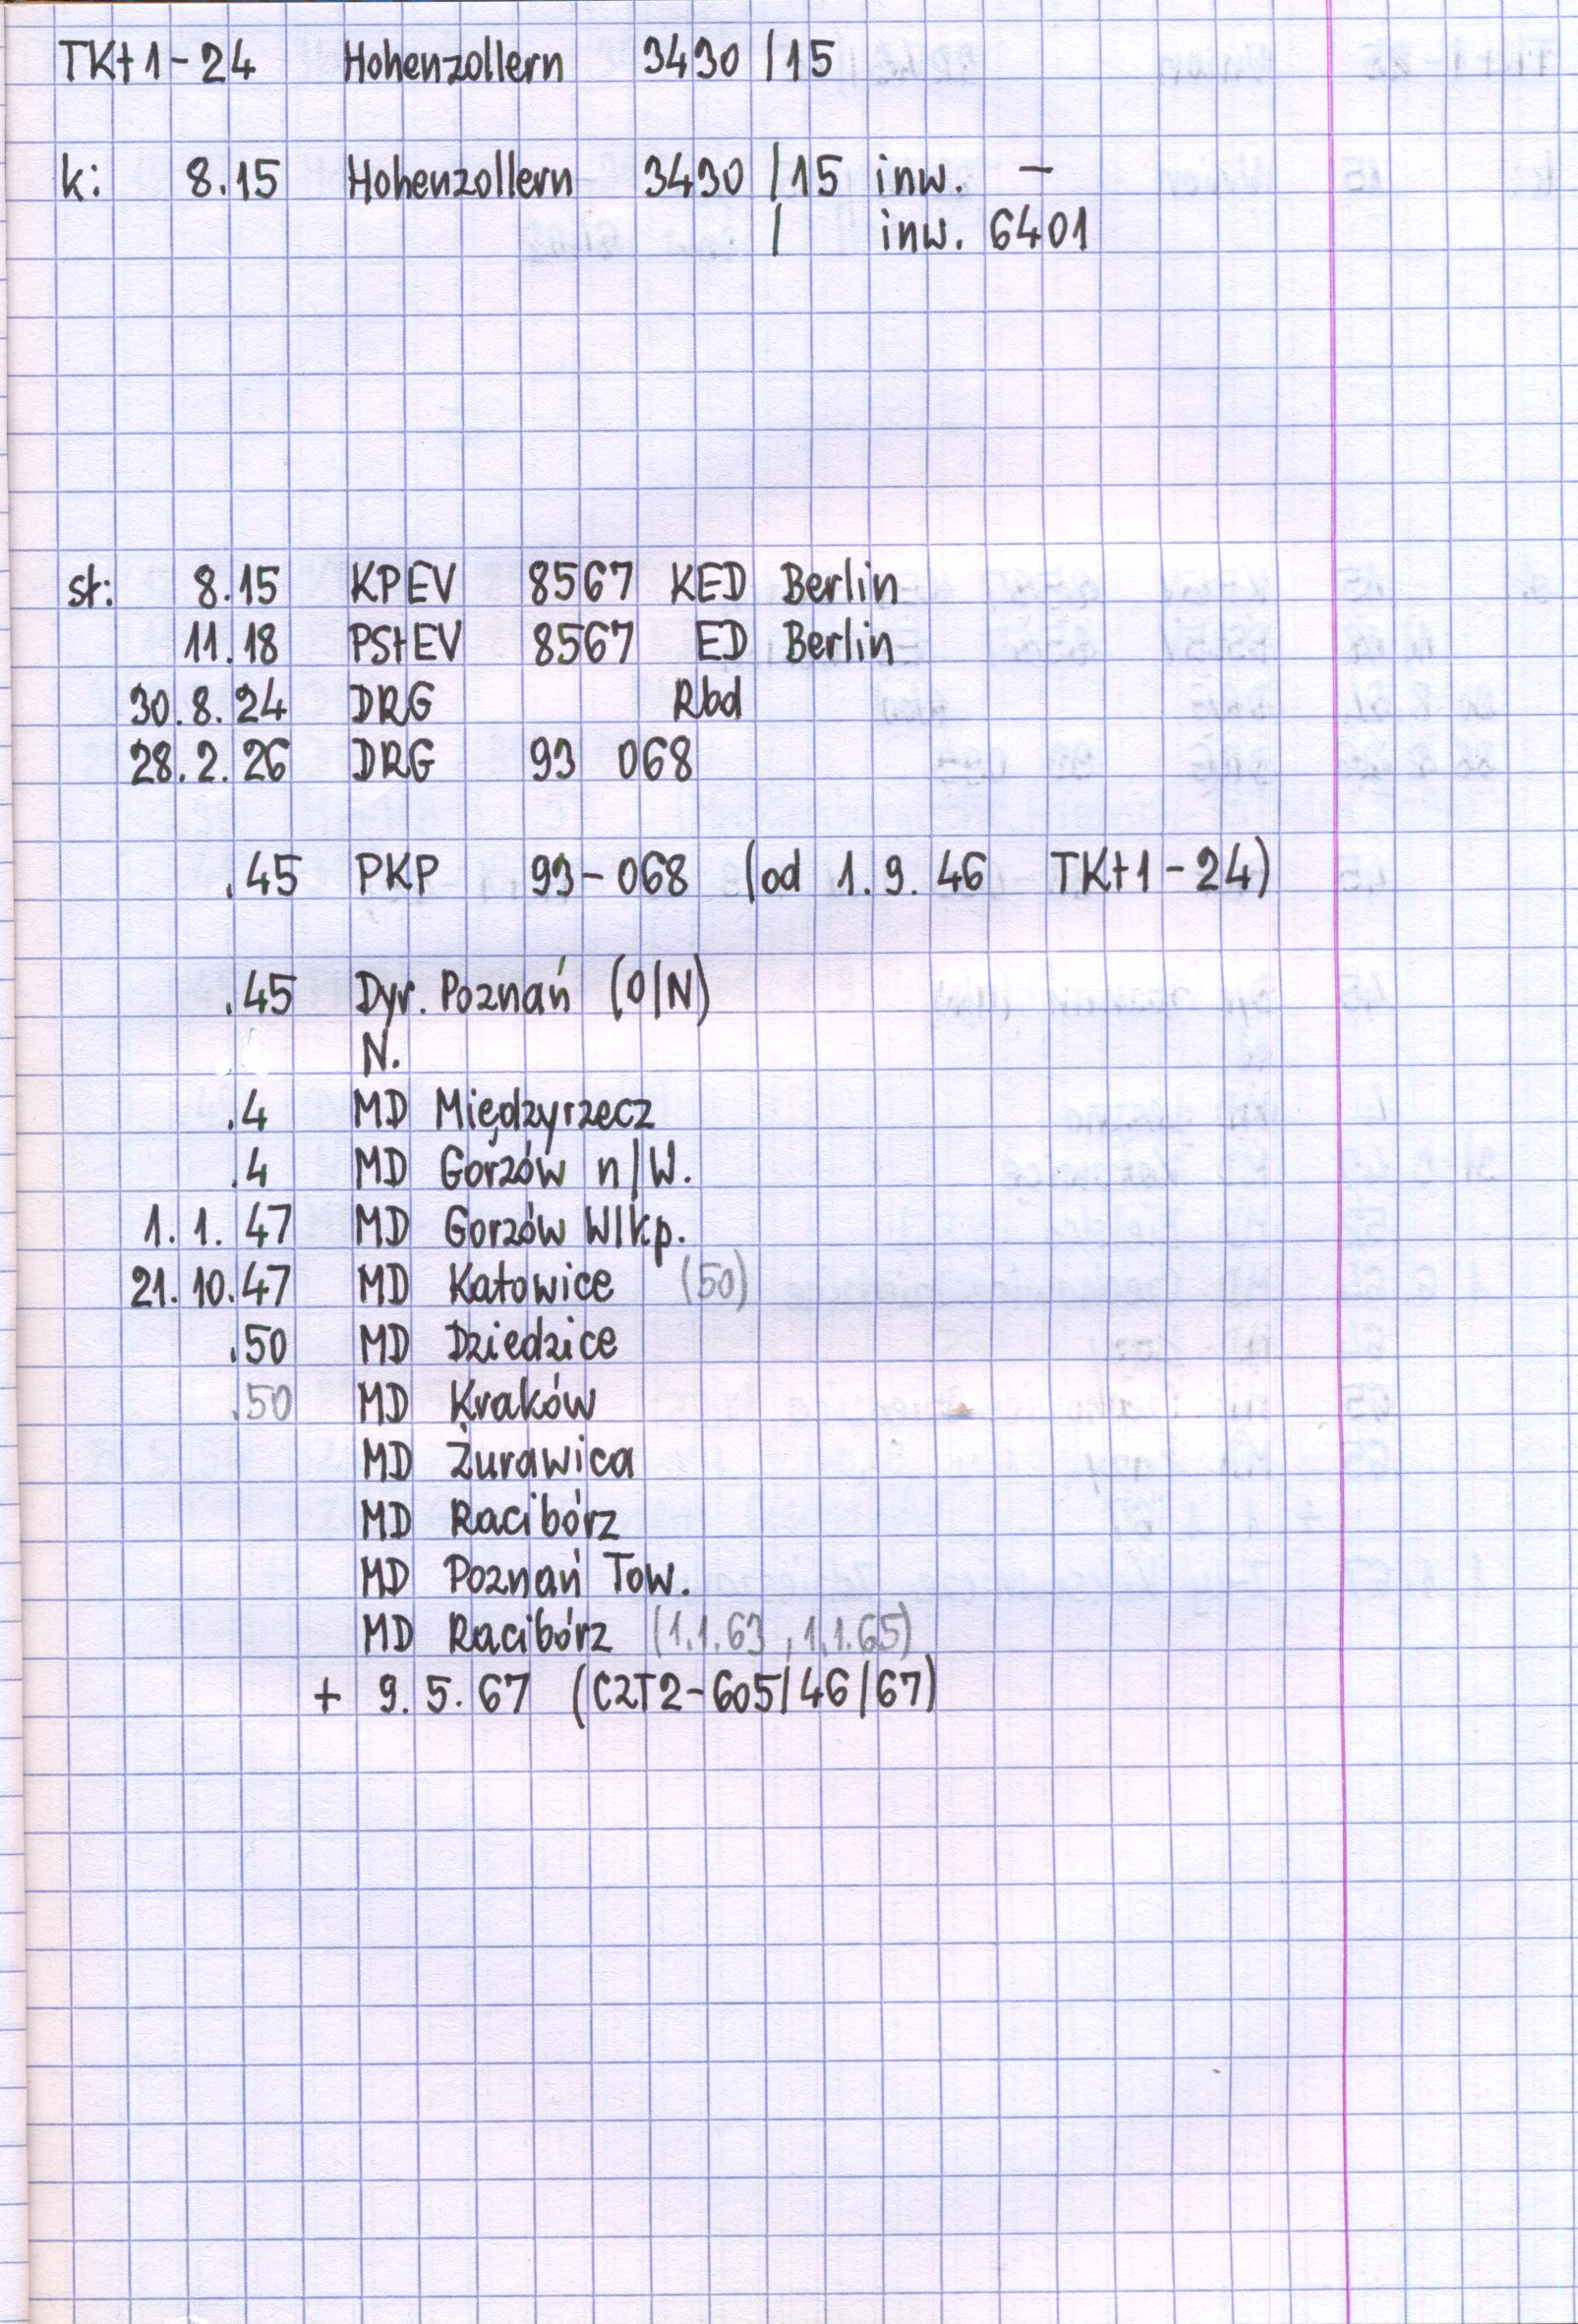 TKt1-24 Hohenzollern 3430/15
k: 8.15 Hohenzollern 3430/15 inw. -
/ inw. 6401
st: 8.15 KPEV 8567 KED Berlin
11.18 PStEV 8567 ED Berlin
30.8.24 DRG Rbd
28.2.26 DRG 93 068
.45 PKP 93-068 (od 1.9.46 TKt1-24)
.45 Dyr. Poznań (O/N)
N.
.4 MD Międzyrzecz
.4 MD Gorzów n/W.
1.1.47 MD Gorzów Wlkp.
21.10.47 MD Katowice (50)
.50 MD Dziedzice
.50 MD Kraków
MD Żurawica
MD Racibórz
MD Poznań Tow.
MD Racibórz (1.1.63, 1.1.65)
+ 9.5.67 (CZT2-605/46/67)